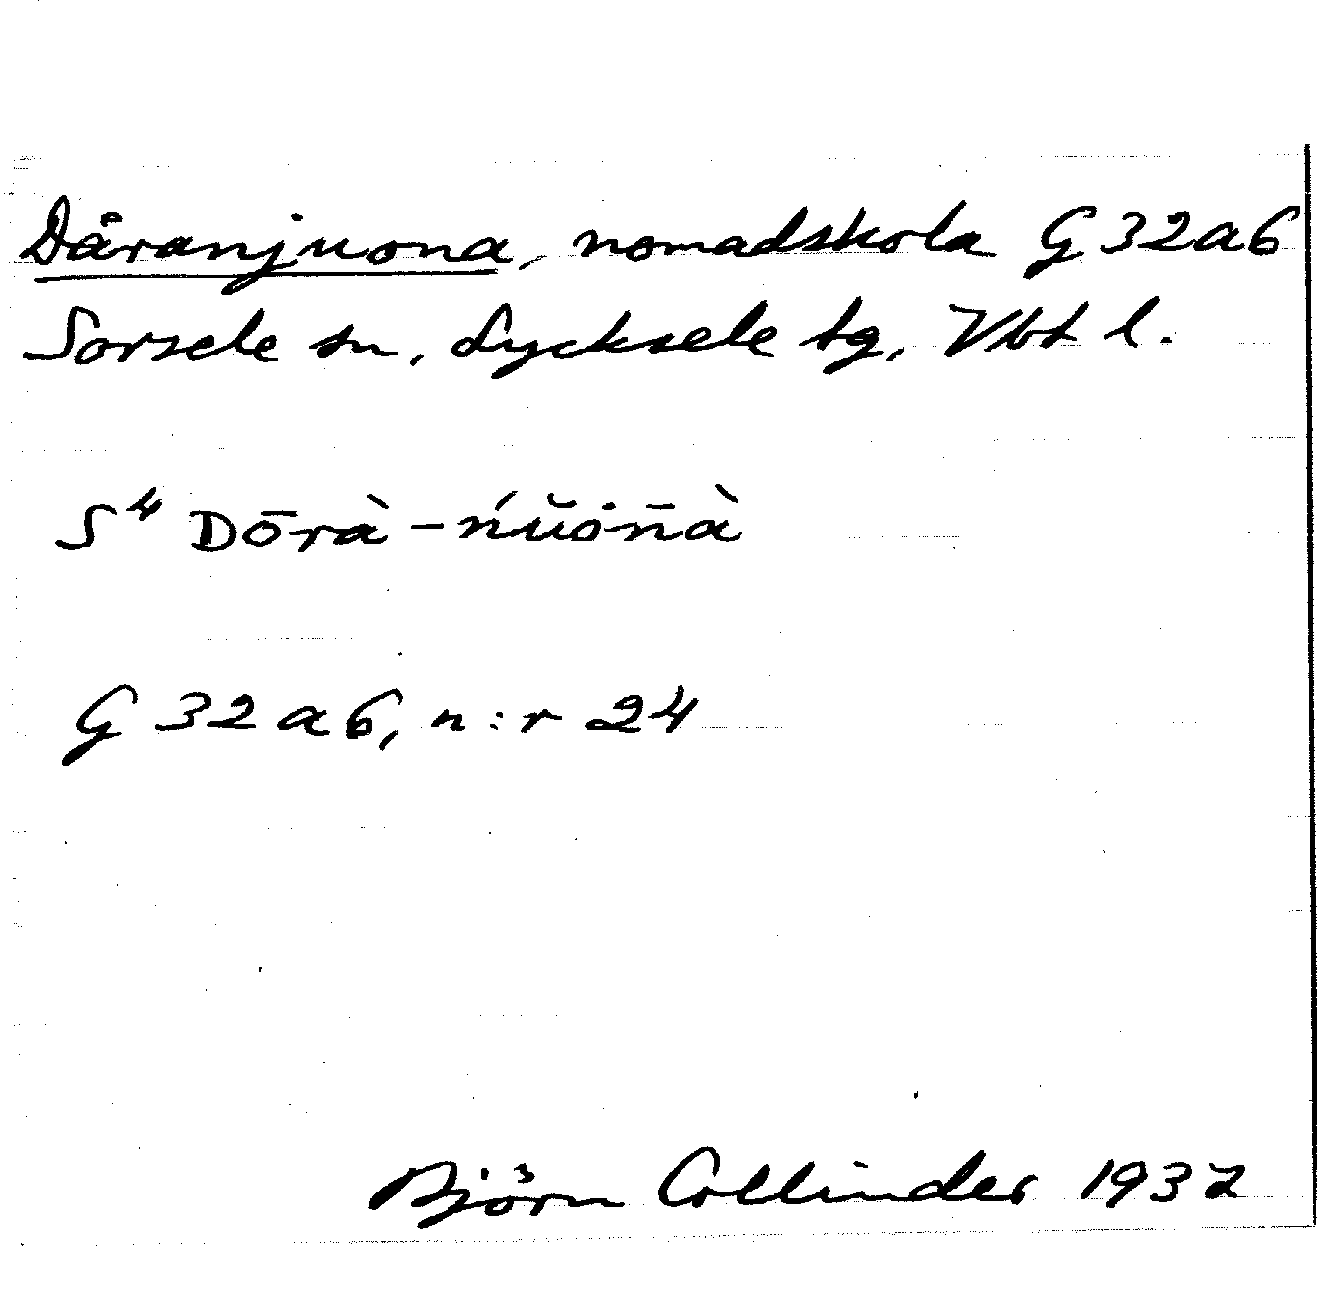 Dåranjuona, nomadskola G 32a6
Sorsele sn, Lycksele tg, Vbt l.
S⁴ Dōrà-ńŭȯn̄à
G 32 a 6, n:r 24
Björn Collinder 1937